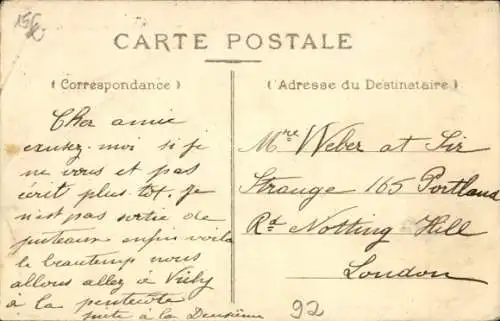 CARTE POSTALE
(Correspondance)
(Adresse du Destinataire)
Cher amie
exusez-moi si je
ne vous et pas
écrit plus tot. Je
n'est pas sortie de
puteaux enfin voila
le beautemp nous
allons allez à Vichy
à la pentecote
suite à la Deuxième
Mme Weber at Sir
Strange 165 Portland
Rd Notting-Hill
London
92